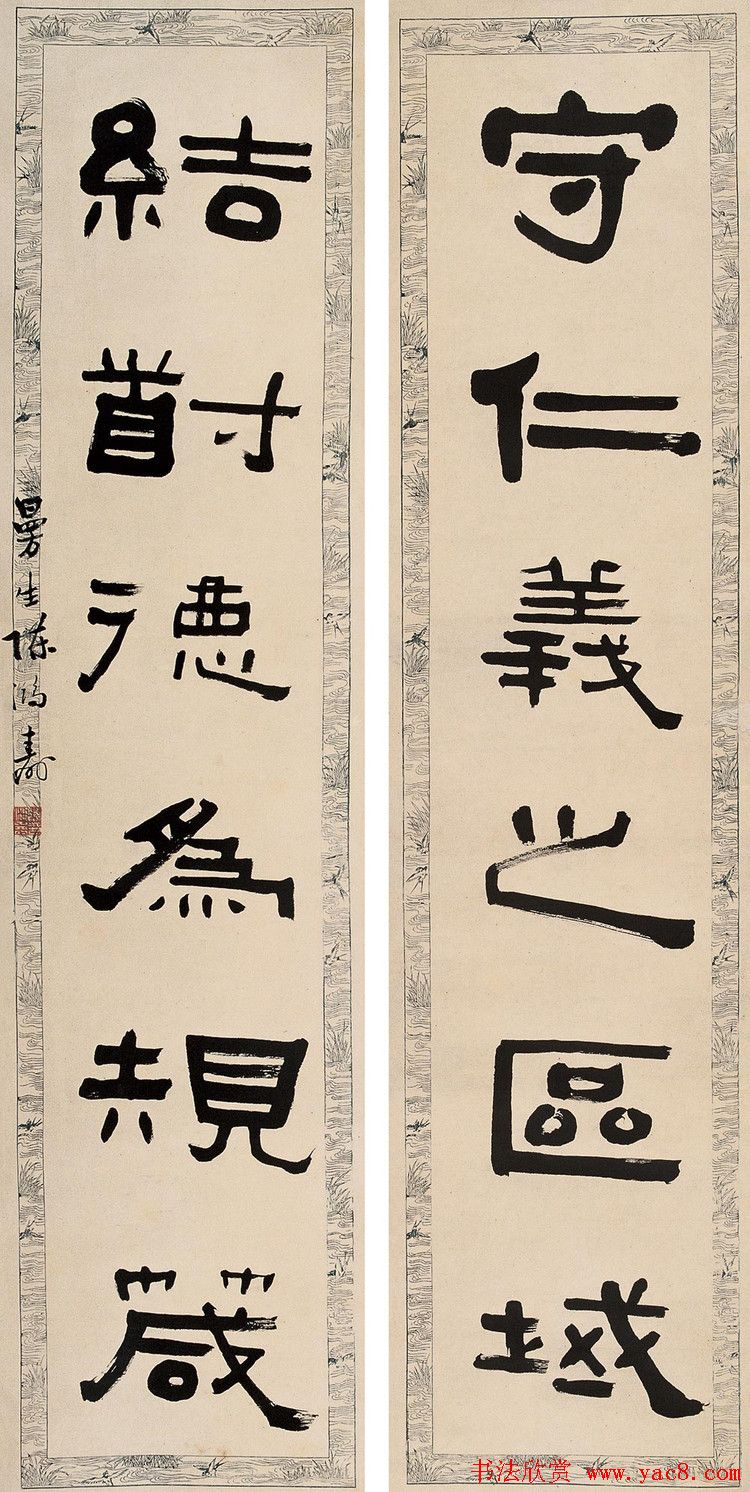 守仁義之區域
結道德爲規箴
曼生陳鴻壽
书法欣赏 www.yac8.com